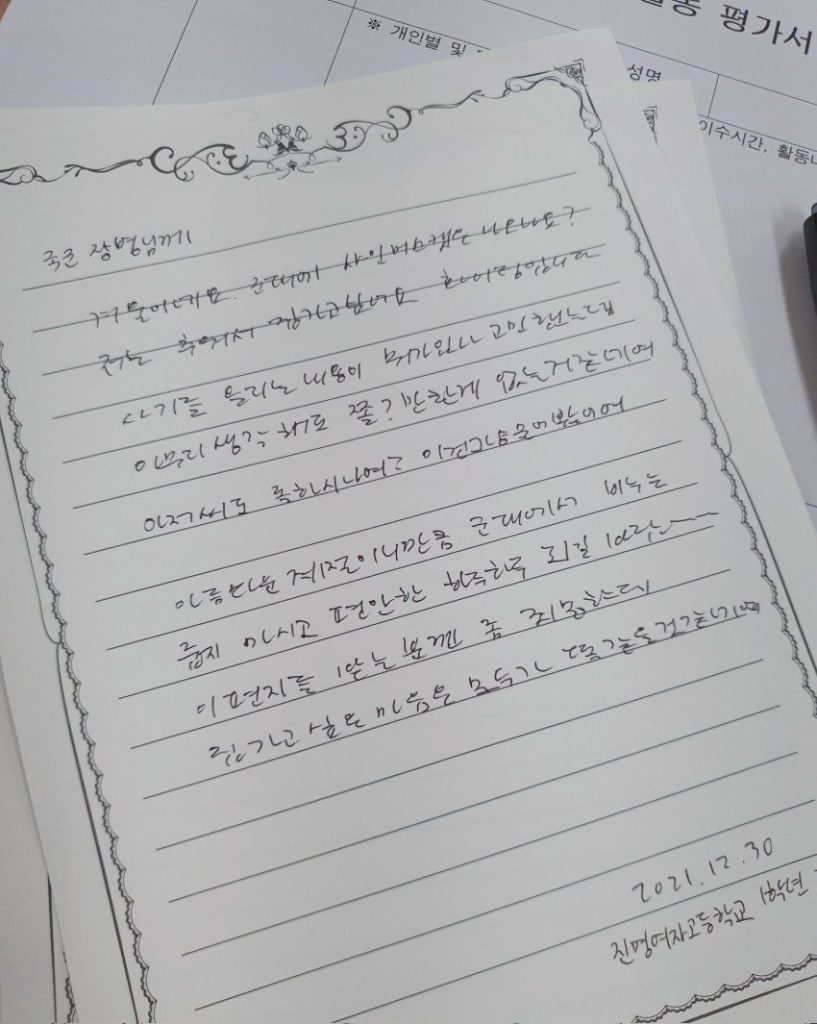 동 평가서
※ 개인별 및
성명
이수시간, 활동내
국군 장병님께
겨울이네요. 군대에 샤인머스캣은 나오나요?
저는 추워서 집가고싶어요 화이팅입니다
사기를 올리는 내용이 뭐가있나 고민했는데
아무리 생각해도 줄? 만한게 없는거같네여
아저씨도 롤하시나여? 이건그냥물어봤어여
아름다운 계절이니만큼 군대에서 비누는
줍지 마시고 편안한 하루하루 되길
이 편지를 받는 분껜 좀 죄송한데
집가고 싶은 마음은 모두가 똑같을것같네여
2021.12.30
진명여자고등학교 1학년